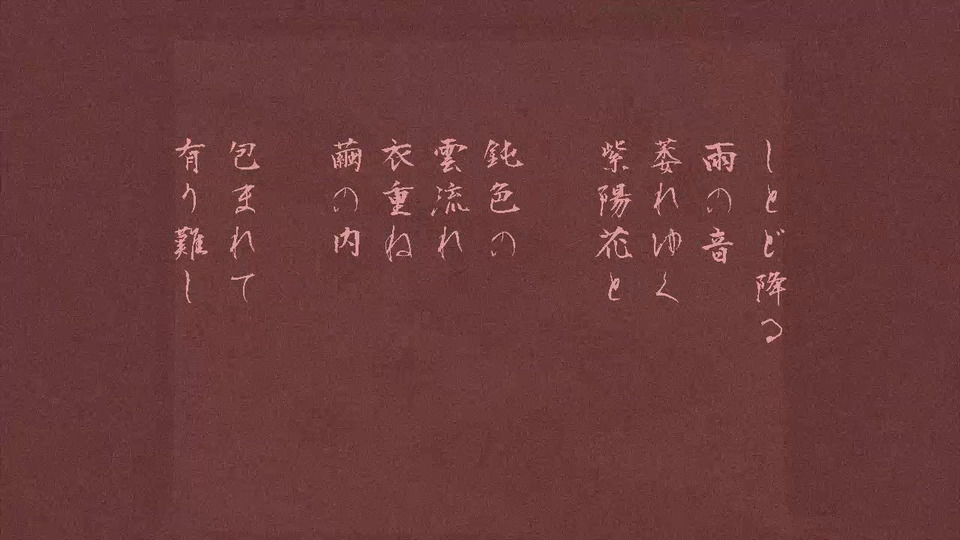 しとど降る
雨の音
萎れゆく
紫陽花と
鈍色の
雲流れ
衣重ね
繭の内
包まれて
有り難し